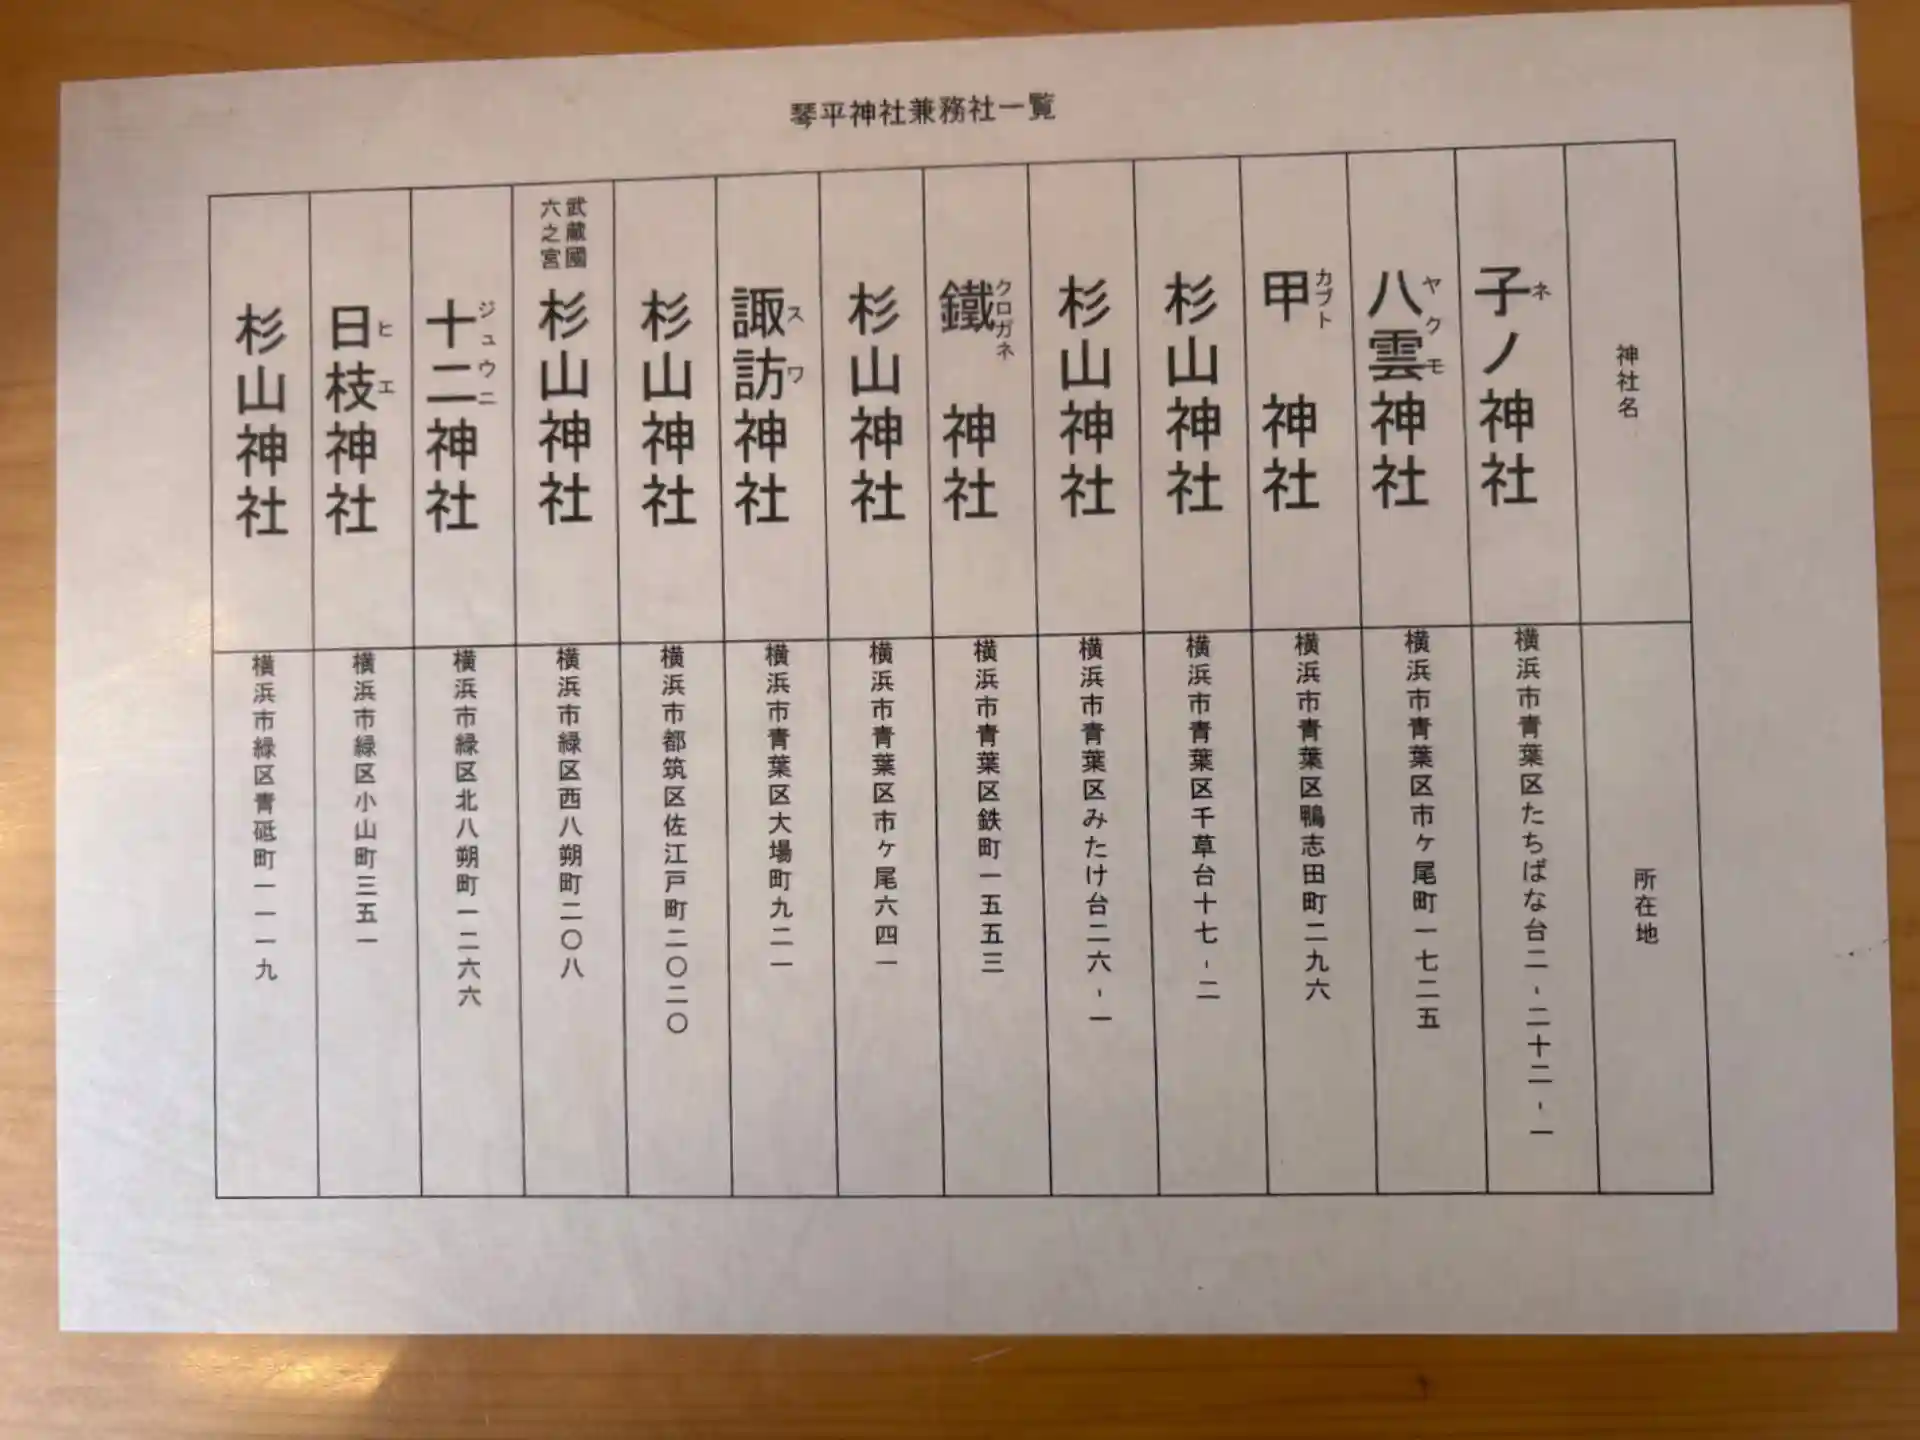 琴平神社兼務社一覧
神社名
所在地
子ノ神社
ネ
横浜市青葉区たちばな台二-二十二-一
八雲神社
ヤクモ
横浜市青葉区市ヶ尾町一七二五
甲 神社
カブト
横浜市青葉区鴨志田町二九六
杉山神社
横浜市青葉区千草台十七-二
杉山神社
横浜市青葉区みたけ台二六-一
鐵 神社
クロガネ
横浜市青葉区鉄町一五五三
杉山神社
横浜市青葉区市ヶ尾六四一
諏訪神社
スワ
横浜市青葉区大場町九二一
杉山神社
横浜市都筑区佐江戸町二〇二〇
武蔵國
六之宮
杉山神社
横浜市緑区西八朔町二〇八
十二神社
ジュウニ
横浜市緑区北八朔町一二六六
日枝神社
ヒエ
横浜市緑区小山町三五一
杉山神社
横浜市緑区青砥町一一一九